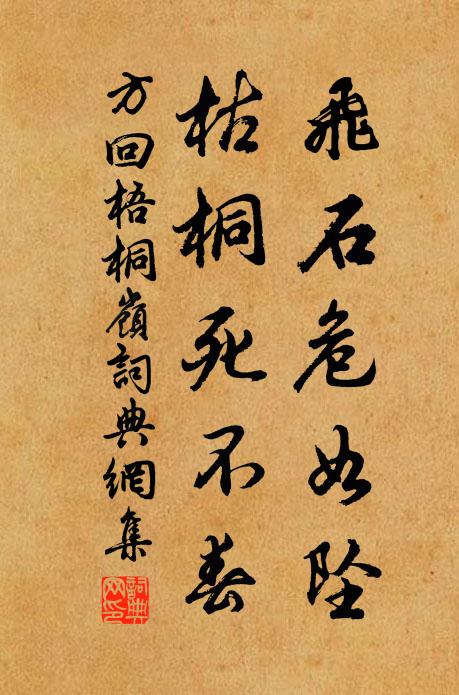 飛石危如墜
枯桐死不春
方回梧桐嶺詞典網集
詞典網印